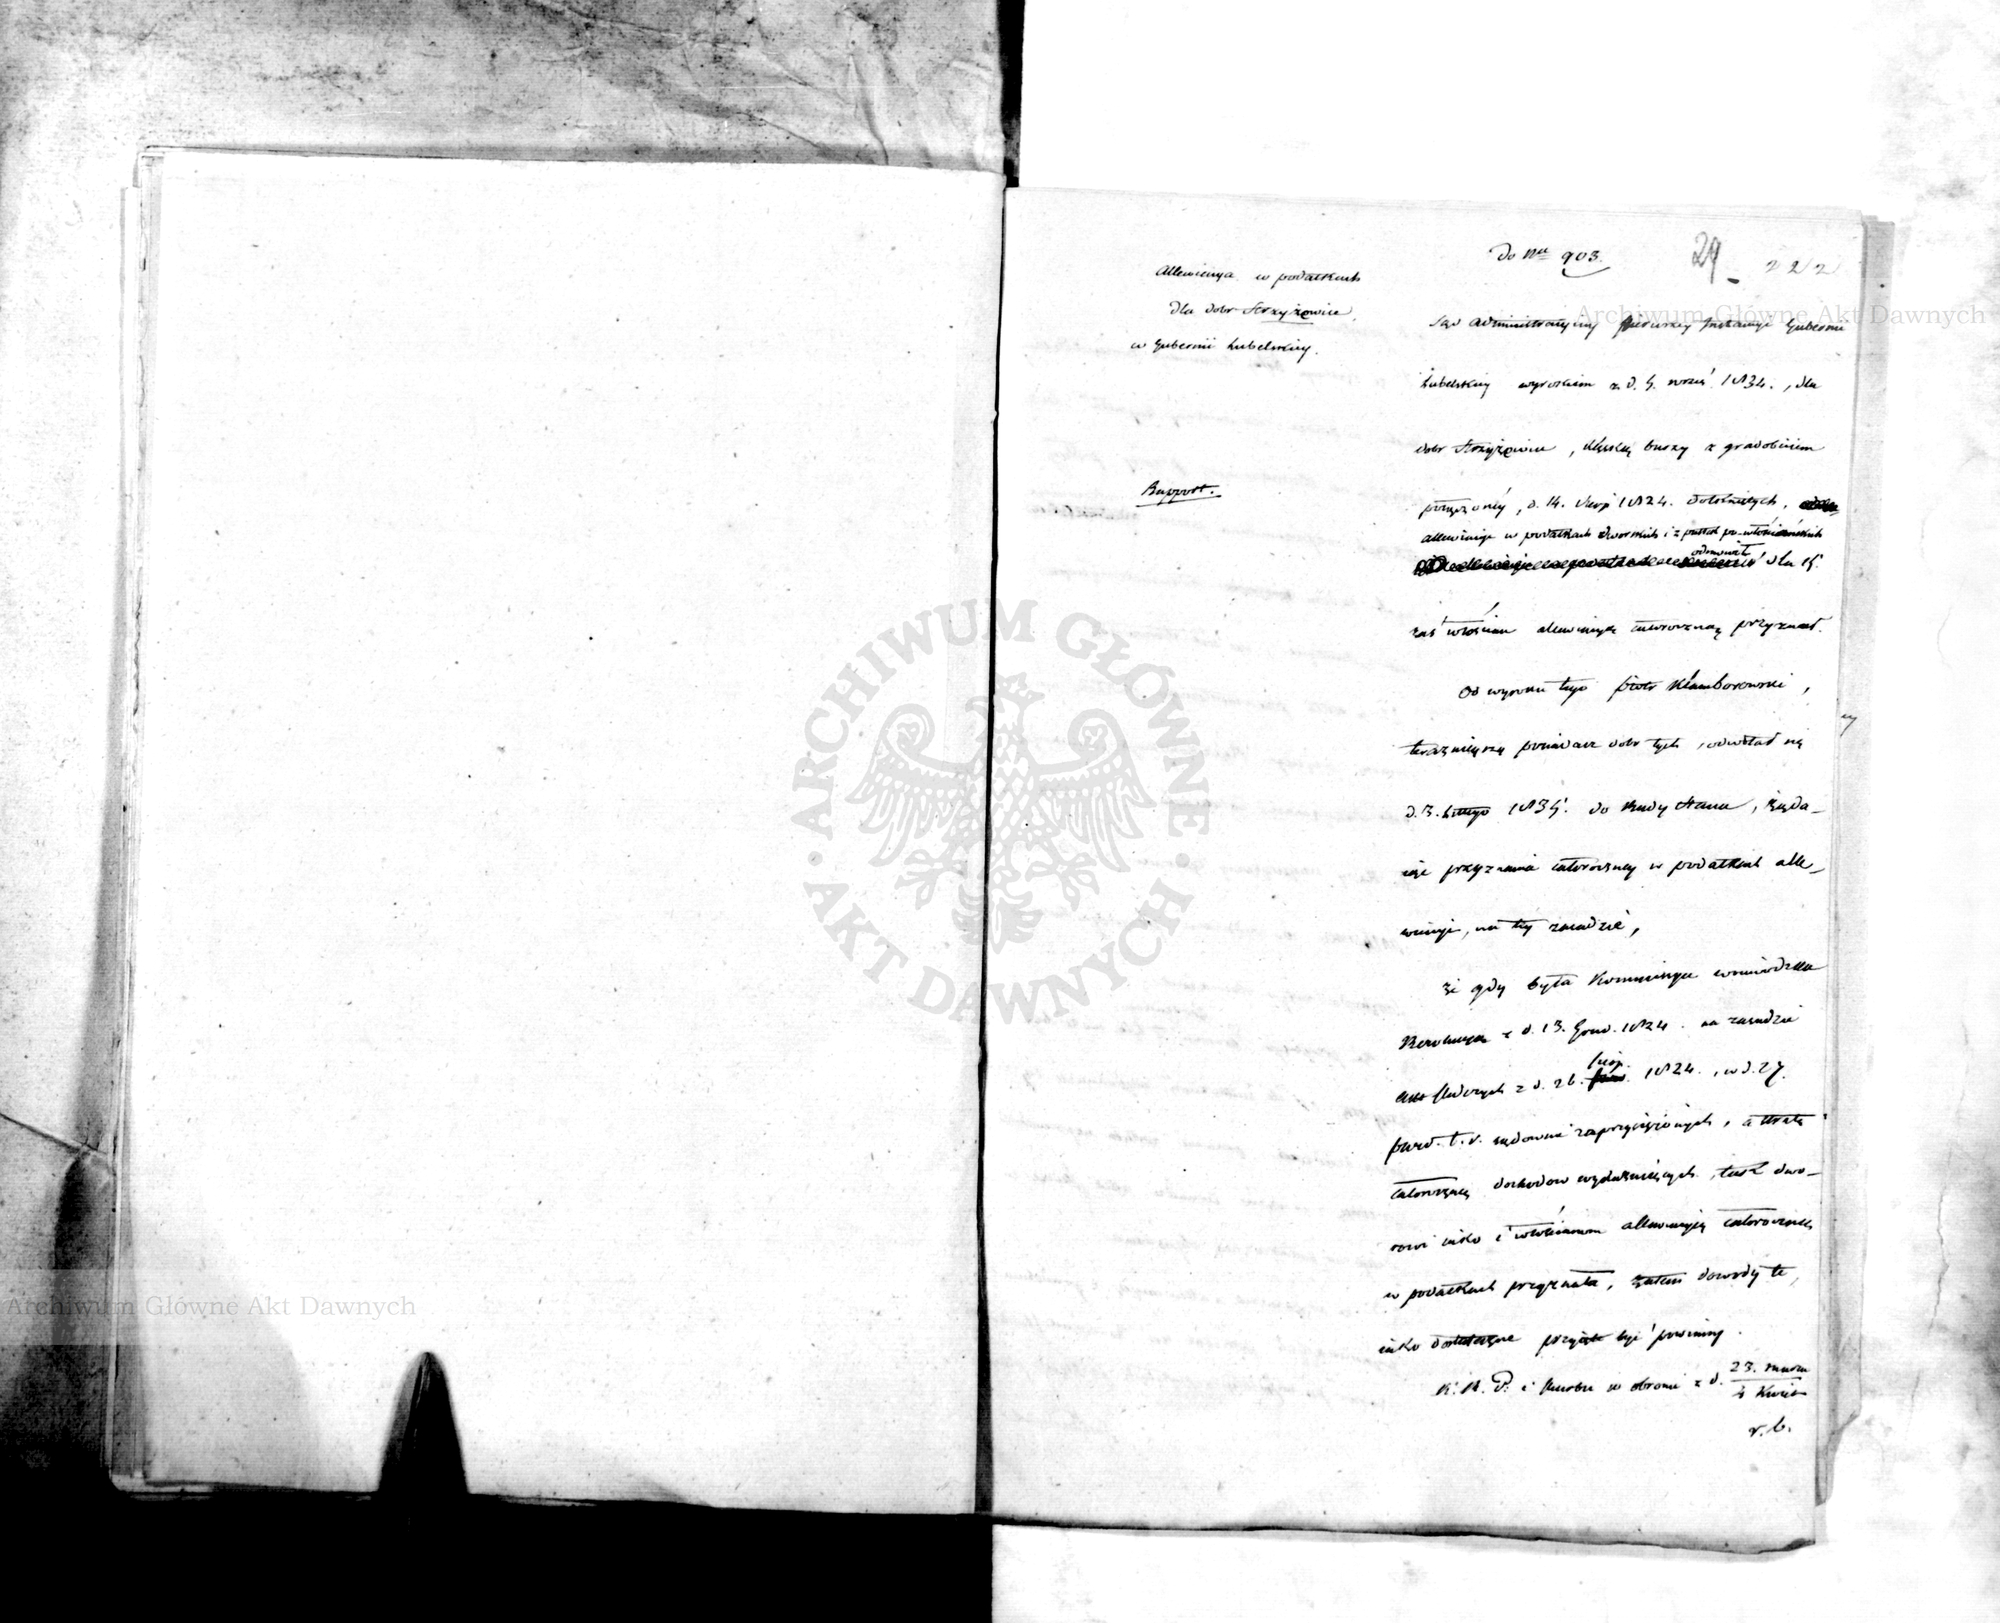 Do Nru 903.
29
222
Allewiacya w podatkach
dla dobr Strzyżowice,
w Gubernii Lubelskiey.
Rapport.
Sąd Administracyiny pierwszey Instancyi Gubernii
Lubelskiey wyrokiem z d. 5. 1834., dla
dobr Strzyżowice, klęską burzy z gradobiciem
d. 14. Sierp 1824. dotkniętych,
allewiacyi w podatkach dworskich i z pustek po-włościańskich
odmówił dla 15
zaś włościan allewiacyą całoroczną przyznał.
Od wyroku tego Piotr Kłamborowski,
teraznieyszy posiadacz dobr tych, odwołał się
d. 3. Lutego 1835. do Rady Stanu, żąda-
iąc przyznania całoroczney w podatkach alle-
wiacyi, na tey zasadzie,
że gdy była Kommissya woiewódzka
Rezolucyą z d. 13. Grud. 1824. na zasadzie
Akt śledczych z d. 26. Sierp. 1824., w d. 27.
Pazd. t. r. sądownie zaprzysiężonych, a utratę
całoroczną dochodow wyiaśniaiących, tak dwo-
rowi iako i włościanom allewiacyią całoroczną
w podatkach przyznała, zatem dowody te,
iako dostateczne przyięte być powinny.
K. R. P. i Skarbu w obronie z d. 23. marca
4 Kwiet
r. b.
ARCHIWUM GŁÓWNE AKT DAWNYCH
Archiwum Główne Akt Dawnych
Archiwum Główne Akt Dawnych